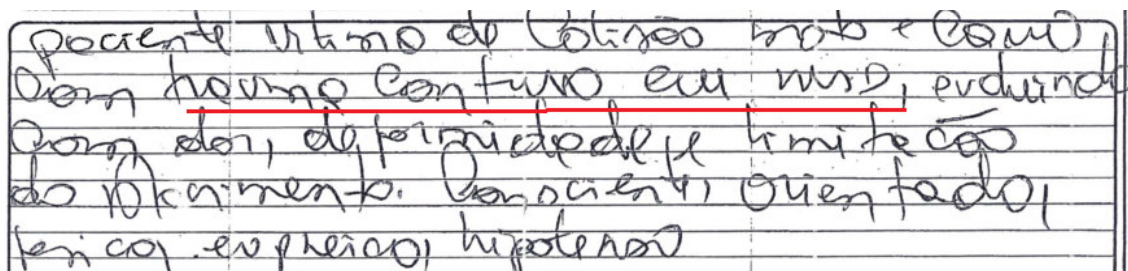 paciente vitima de Colisão moto e Carro,
Com trauma Contuso em MSD, evoluindo
Com dor, deformidade e limitação
do movimento. Consciente, Orientado,
eupneico, hipotenso